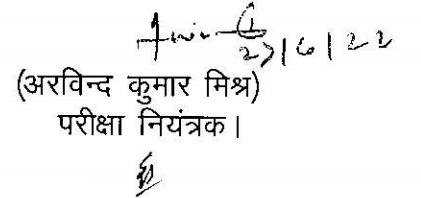 27/6/22
(अरविन्द कुमार मिश्र)
परीक्षा नियंत्रक।